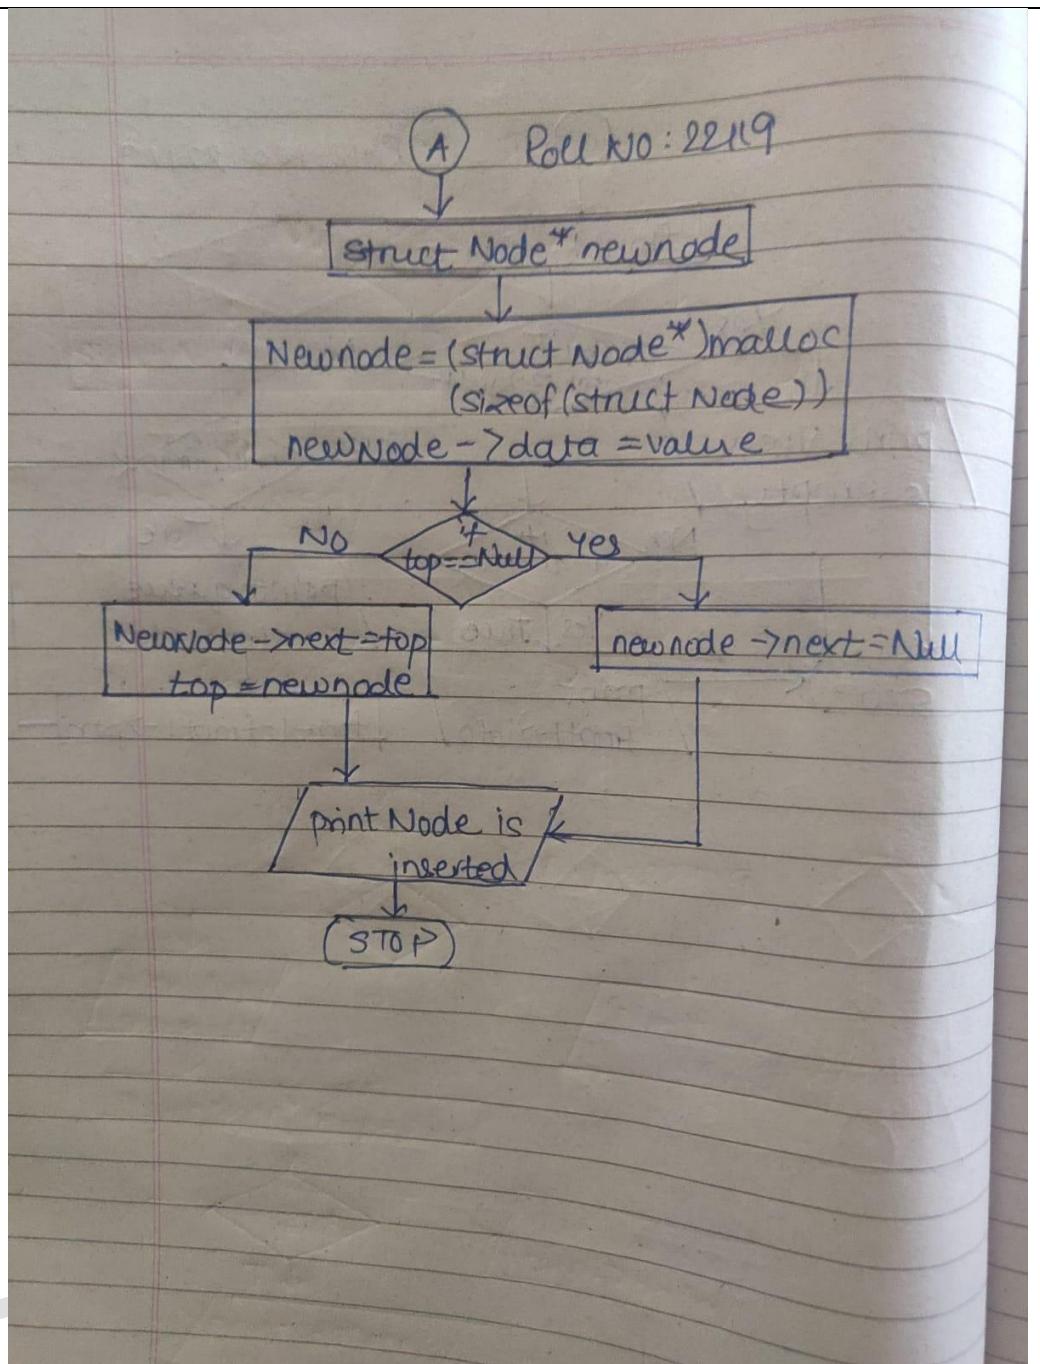 A Roll NO: 22119
struct Node* newnode
Newnode=(struct Node*)malloc
(sizeof(struct Node))
newNode->data=value
NO if yes
top==Null
NewNode->next=top newnode->next=Null
top=newnode
print Node is
inserted
STOP